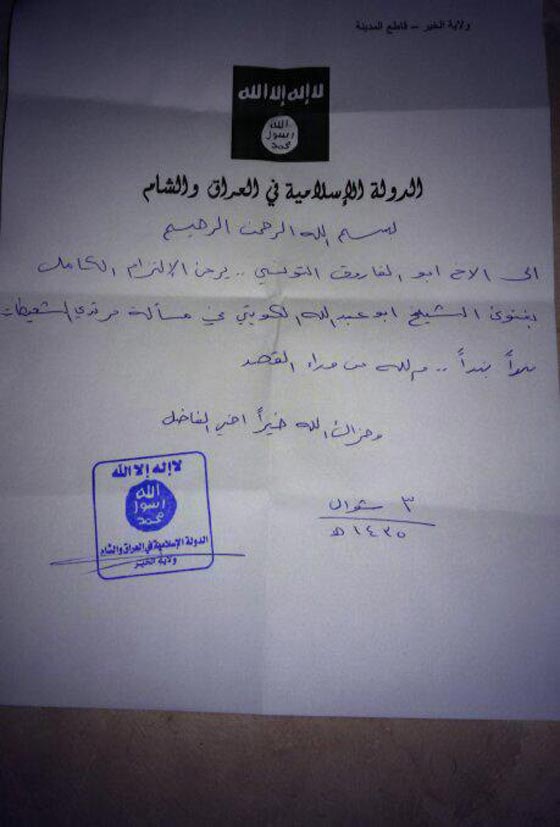 ولاية الخير – قاطع المدينة
لا إله إلا الله
الله
رسول
محمد
الدولة الإسلامية في العراق والشام
بسم الله الرحمن الرحيم
الى الاخ ابو الفاروق التونسي .. يرجى الإلتزام الكامل
بفتوى الشيخ ابو عبد الله الكويتي في مسألة مرتدي الشعيطات
بنداً بنداً .. والله من وراء القصد
وجزاك الله خيراً اخي الفاضل
٣ شوال
١٤٣٥ هـ
لا إله إلا الله
الله
رسول
محمد
الدولة الإسلامية في العراق والشام
ولاية الخير